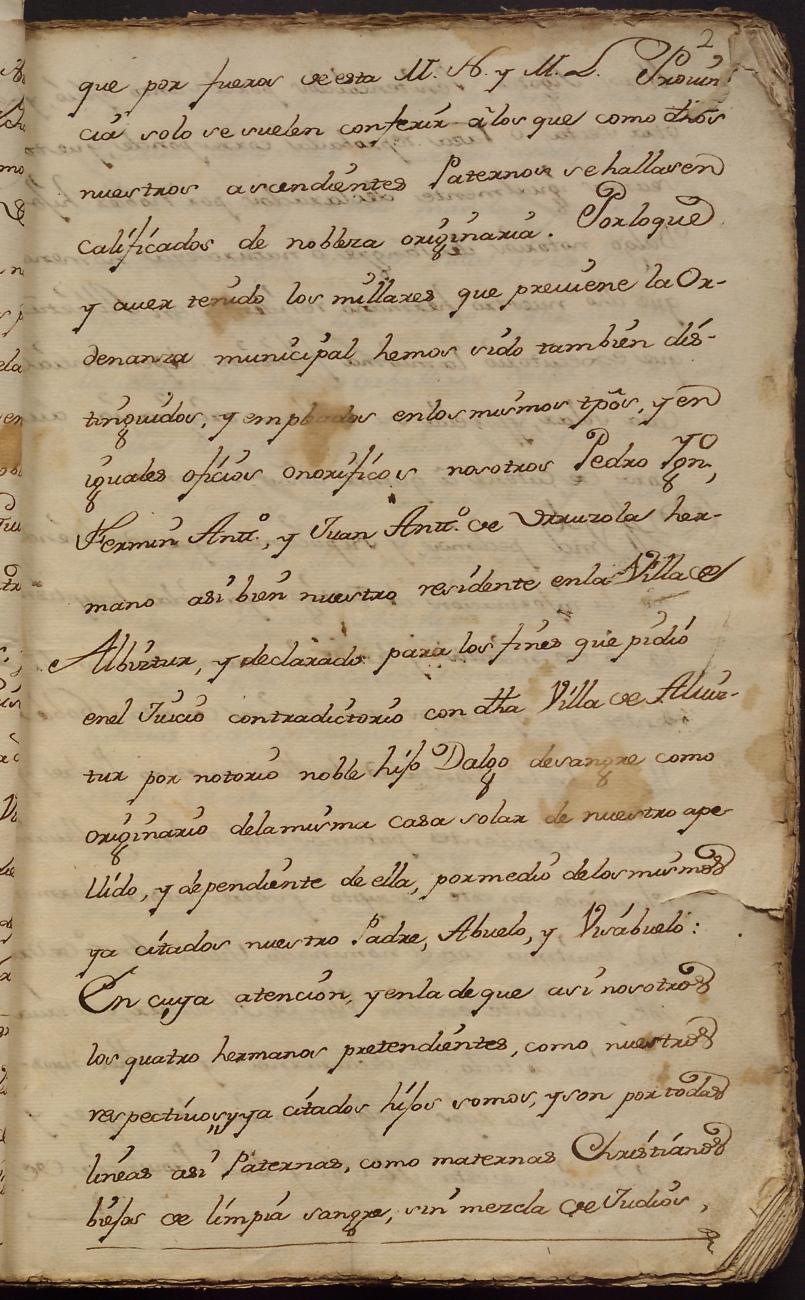 2
que por fueros de esta M. N. y M. L. Provin-
cia solo se suelen conferir â los que como dhos
nuestros ascendientes Paternos se hallasen
calificados de nobleza originaria. Porloque
y aver tenido los millares que previene la Or-
denanza municipal hemos sido tambien dis-
tinguidos, y empleados enlos mismos tpôs, y en
iguales oficios onorificos nosotros Pedro Ygn.º,
Fermin Antt.º, y Juan Antt.º de Vrruzola her-
mano asi bien nuestro residente enla Villa de
Albiztur, y declarado para los fines que pidió
enel Juicio contradictorio con dha Villa de Alviz-
tur por notorio noble hijo Dalgo desangre como
originario dela misma casa solar de nuestro ape-
llido, y dependiente de ella, pormedio delos mismos
ya citados nuestro Padre, Abuelo, y Visabuelo:
En cuya atencion, y enla de que asi nosotros
los quatro hermanos pretendientes, como nuestros
respectivos, y ya citados hijos somos, y son por todas
lineas asi Paternas, como maternas Christianos
biejos de limpia sangre, sin mezcla de Judios,